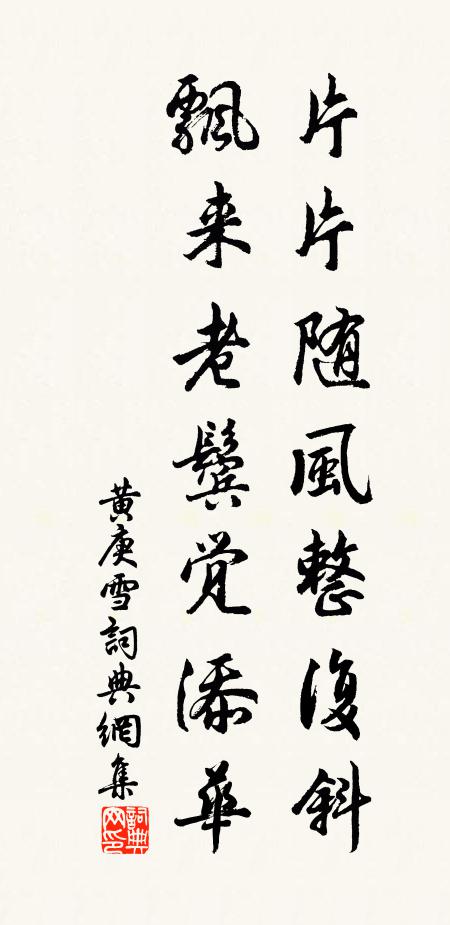 片片随風整復斜
飄来老鬢覚添華
黄庚雪詞典網集
詞典网印